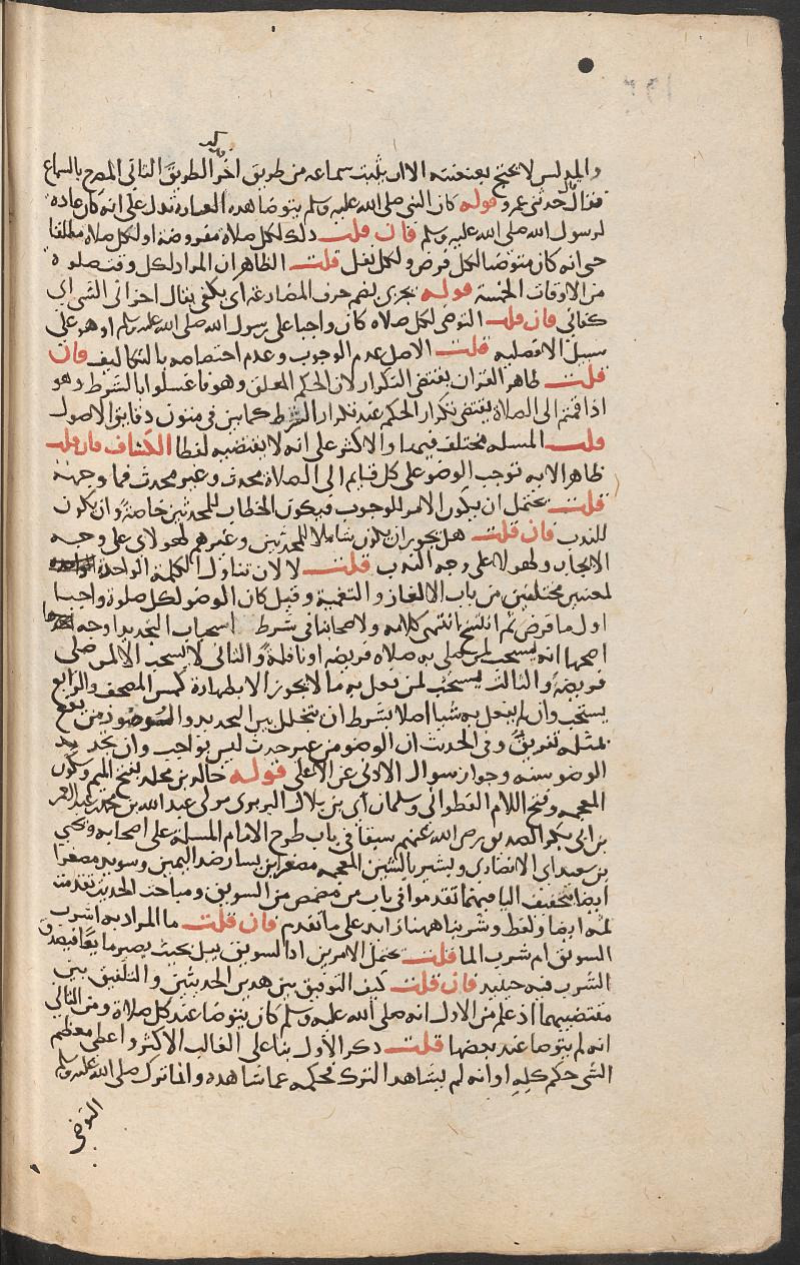 والمدلس لا يحتج بعنعنته الا ان يثبت سماعه من طريق اخر فذكر الطريق الثاني المصرح بالسماع
فقال حدثني عمرو قوله كان النبي صلى الله عليه وسلم يتوضا هذه العبارة تدل على انه كان عادة
لرسول الله صلى الله عليه وسلم فان قلت ذلك لكل صلاة مفروضة او لكل صلاة مطلقا
حتى انه كان متوضا لكل فرض ولكل نفل قلت الظاهر ان المراد لكل وقت صلوة
من الاوقات الخمسة قوله يجزي بضم حرف المضارعة اي يكفي يقال اجزاني الشي اي
كفاني فان قلت التوضي لكل صلاة كان واجبا على رسول الله صلى الله عليه وسلم او هو على
سبيل الافضليه قلت الاصل عدم الوجوب وعدم اختصاصه بالتكاليف فان
قلت ظاهر القران يقتضي التكرار لان الحكم المعلق وهو فاغسلوا بالشرط وهو
اذا قمتم الى الصلاة يقتضي تكرار الحكم عند تكرار الشرط كما بين في متون دقايق الاصول
قلت المسله مختلف فيها والاكثر على انه لا يقتضيه لفظا الكشاف فان قلت
ظاهر الايه توجب الوضو على كل قايم الى الصلاة محدث وغير محدث فما وجهه
قلت يحتمل ان يكون الامر للوجوب فيكون الخطاب للمحدثين خاصة وان يكون
للندب فان قلت هل يجوز ان يكون شاملا للمحدثين وغيرهم لهولاي على وجه
الايجاب ولهولاء على وجه الندب قلت لا لان تناول الكلمة الواحدة
لمعنيين مختلفين من باب الالغاز والتعمية وقيل كان الوضو لكل صلوة واجبا
اول ما فرض ثم انتسخ انتهى كلامه ولاصحابنا في شرط استحباب التجديد اوجه احدها
اصحها انه يستحب لمن صلى به صلاه فريضه او نافلة والثاني لا يستحب الا لمن صلى
فريضة والثالث يستحب لمن يفعل به ما لا يجوز الا بطهارة كمس المصحف والرابع
يستحب وان لم يفعل به شيا اصلا بشرط ان يتخلل بين التجديد والوضو زمن يقع
بمثله تفريق وفي الحديث ان الوضو من غير حدث ليس بواجب وان تجديد
الوضو سنه وجواز سوال الادنى عن الاعلى قوله خالد بن مخلد بفتح الميم وسكون
المعجمه وفتح اللام القطواني وسلمان اى بن بلال البربرى مولى عبد الله بن محمد بن عبد الرحمن
بن ابى بكر الصديق رضى الله عنهم سبقا في باب طرح الامام المسلة على اصحابه ويحيى
بن سعيد اي الانصاري وبشير بالشين المعجمه مصغرا بن يسار ضد اليمين وسويد مصغرا
ايضا بتخفيف اليا فيهما تقدموا في باب من مضمض من السويق ومباحث الحديث تقدمت
ثمه ايضا ولفظ وشربنا ههنا زايد على ما تقدم فان قلت ما المراد به اشرب
السويق ام شرب الما قلت يحتمل الامرين اذ السويق يبل بحيث يصير مايعا فيصدق
الشرب فيه حينيد فان قلت كيف التوفيق بين هذين الحديثين والتلفيق بين
مقتضييهما اذ علم من الاول انه صلى الله عليه وسلم كان يتوضا عند كل صلاة ومن الثاني
انه لم يتوضا عند بعضها قلت ذكر الاول بنا على الغالب الاكثر واعطى معظم
الشي حكم كله او انه لم يشاهد الترك فحكمه عما شاهده وانما ترك صلى الله عليه وسلم
التوضي